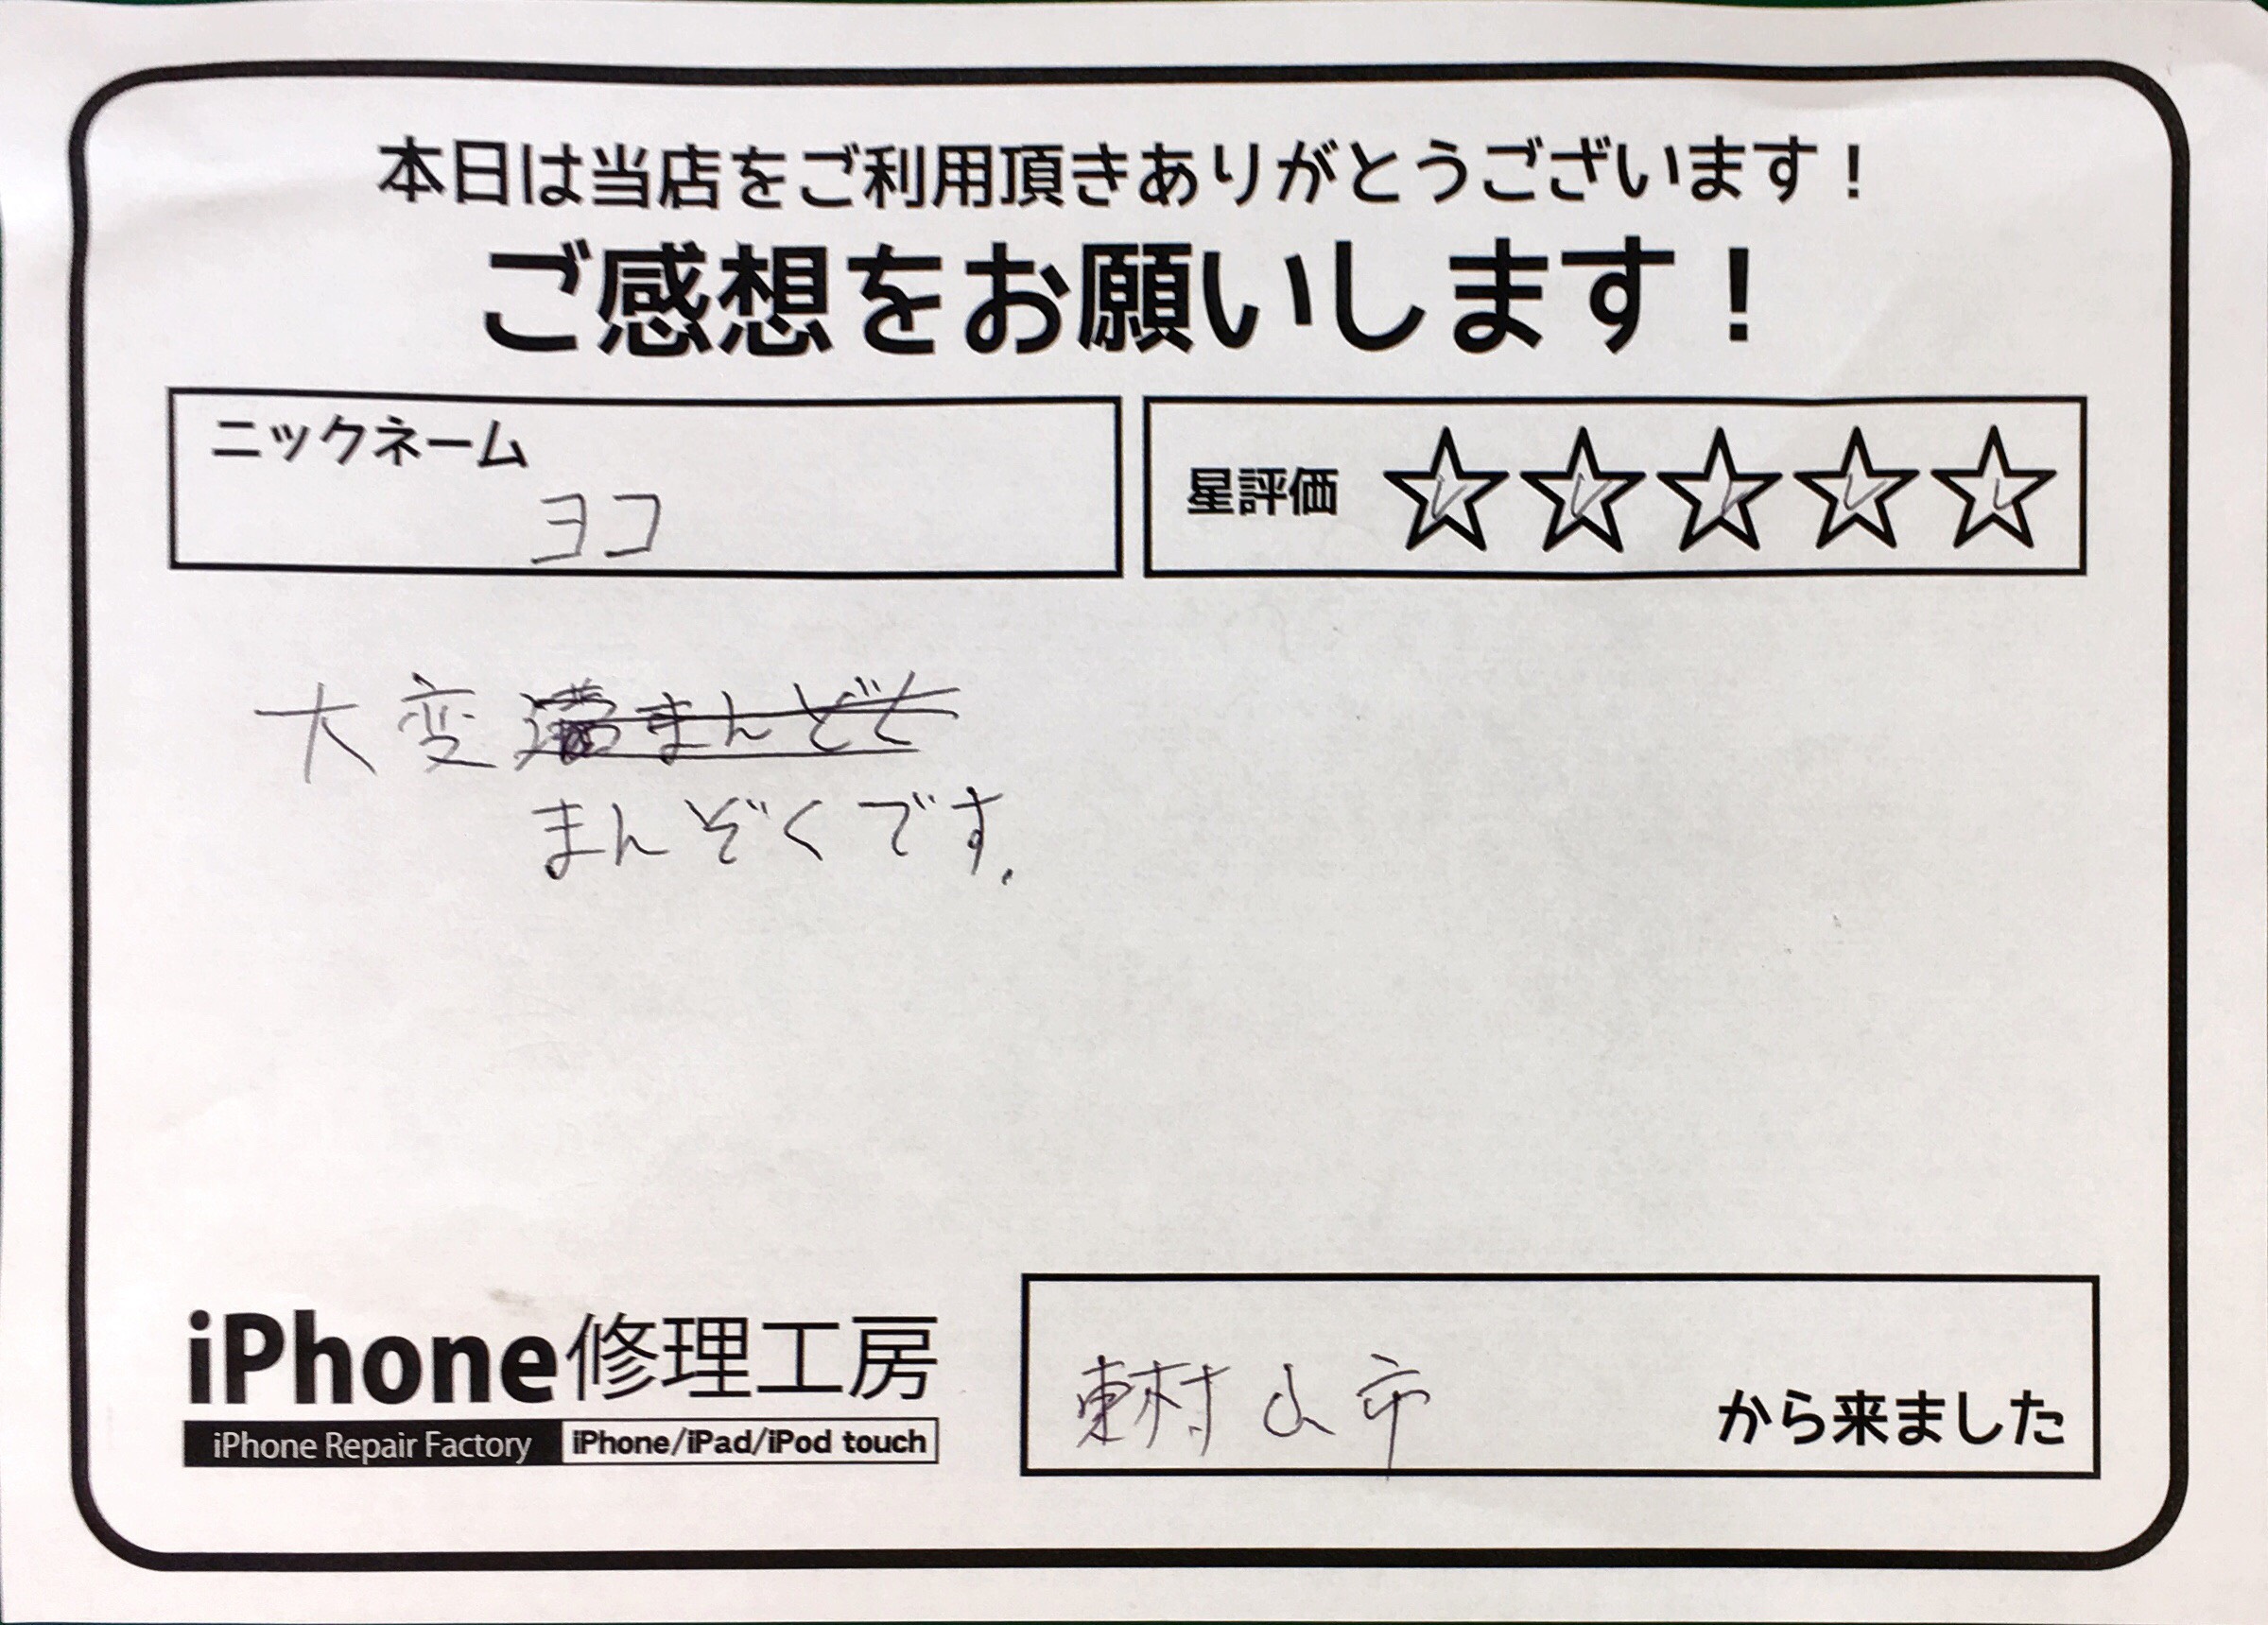 本日は当店をご利用頂きありがとうございます！
ご感想をお願いします！
ニックネーム
ヨコ
星評価 ☆☆☆☆☆
大変
まんぞくです.
iPhone修理工房
iPhone Repair Factory iPhone/iPad/iPod touch
東村山市 から来ました